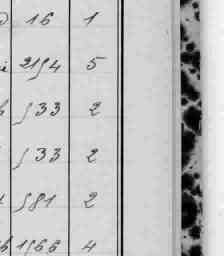 16 1
2154 5
533 2
533 2
581 2
1566 4